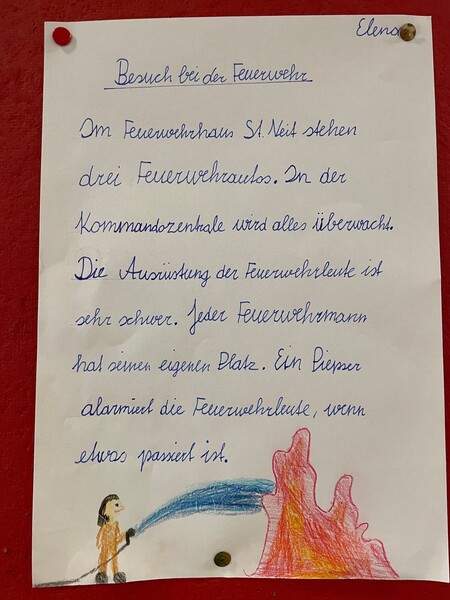 Elena
Besuch bei der Feuerwehr
Im Feuerwehrhaus St. Veit stehen
drei Feuerwehrautos. In der
Kommandozentrale wird alles überwacht.
Die Ausrüstung der Feuerwehrleute ist
sehr schwer. Jeder Feuerwehrmann
hat seinen eigenen Platz. Ein Piepser
alarmiert die Feuerwehrleute, wenn
etwas passiert ist.